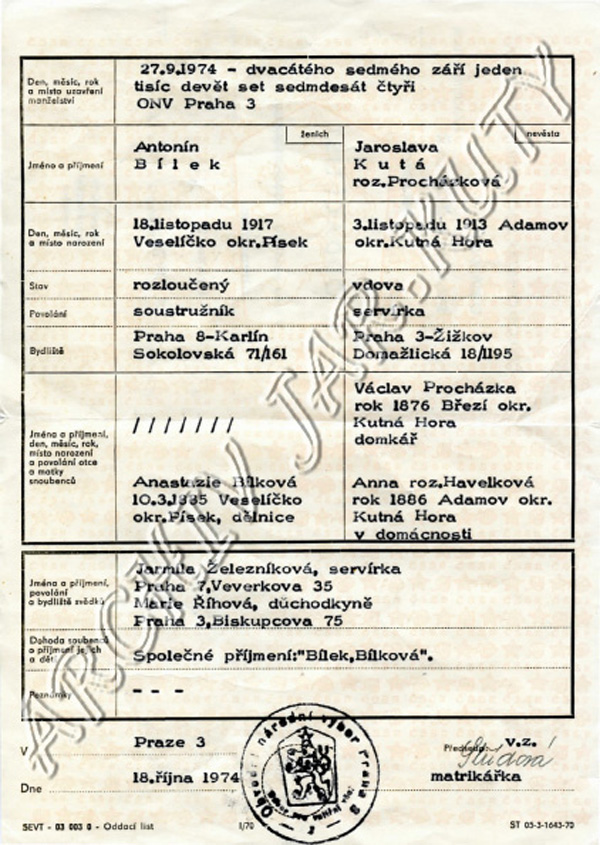 Den, měsíc, rok
a místo uzavření
manželství
27.9.1974 - dvacátého sedmého září jeden
tisíc devět set sedmdesát čtyři
ONV Praha 3
Jméno a příjmení
ženich
Antonín
B í l e k
nevěsta
Jaroslava
K u t á
roz.Procházková
Den, měsíc, rok
a místo narození
18.listopadu 1917
Veselíčko okr.Písek
3.listopadu 1913 Adamov
okr.Kutná Hora
Stav
rozloučený
vdova
Povolání
soustružník
servírka
Bydliště
Praha 8-Karlín
Sokolovská 71/161
Praha 3-Žižkov
Domažlická 18/1195
Jméno a příjmení,
den, měsíc, rok,
místo narození
a povolání otce
a matky
snoubenců
/ / / / / / /
Václav Procházka
rok 1876 Březí okr.
Kutná Hora
domkář
Anastázie Bílková
10.3.1885 Veselíčko
okr.Písek, dělnice
Anna roz.Havelková
rok 1886 Adamov okr.
Kutná Hora
v domácnosti
Jména a příjmení,
povolání
a bydliště svědků
Jarmila Železníková, servírka
Praha 7,Veverkova 35
Marie Říhová, důchodkyně
Praha 3,Biskupcova 75
Dohoda snoubenců
o příjmení jejich
a dětí
Společné příjmení:"Bílek,Bílková".
Poznámky
- - -
V Praze 3
Dne 18.října 1974
Obvodní národní výbor Praha 3
3
Předseda: v.z.
matrikářka
SEVT - 03 003 0 - Oddací list
I/70
ST 03-3-1643-70
ARCHIV JAR.KUTY